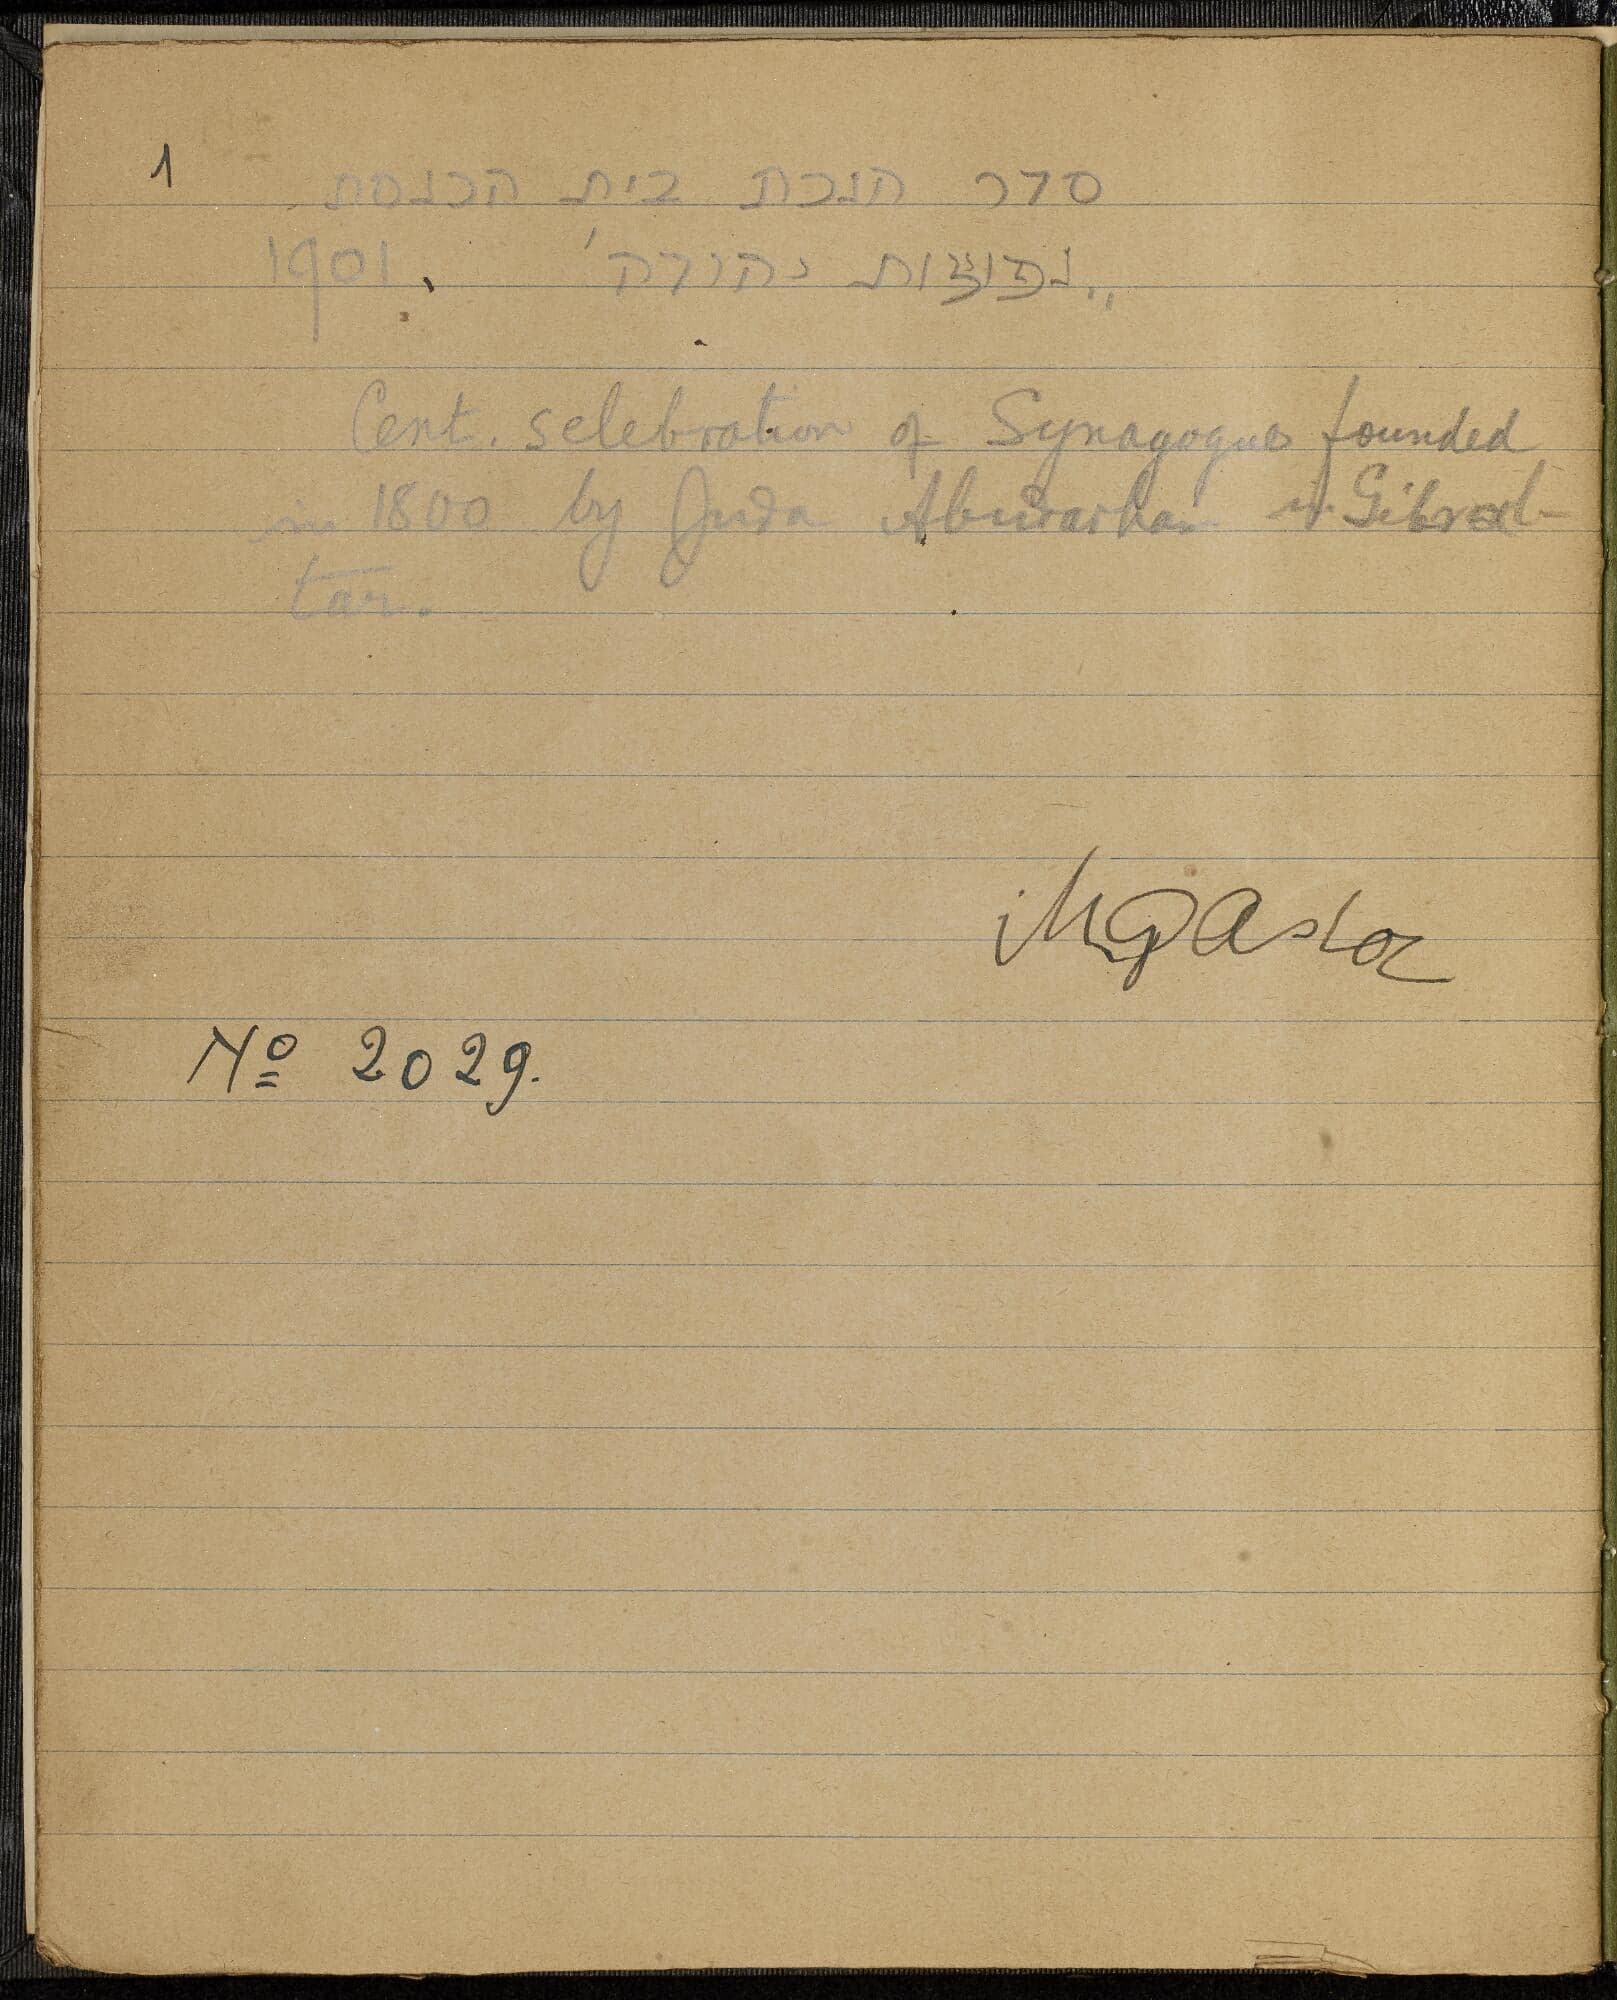 1
סדר חנכת בית הכנסת
„נפוצות יהודה' 1901.
Cent. selebration of Synagogue founded
in 1800 by Juda Abudarham in Gibral-
tar.
MGaster
Nº 2029.